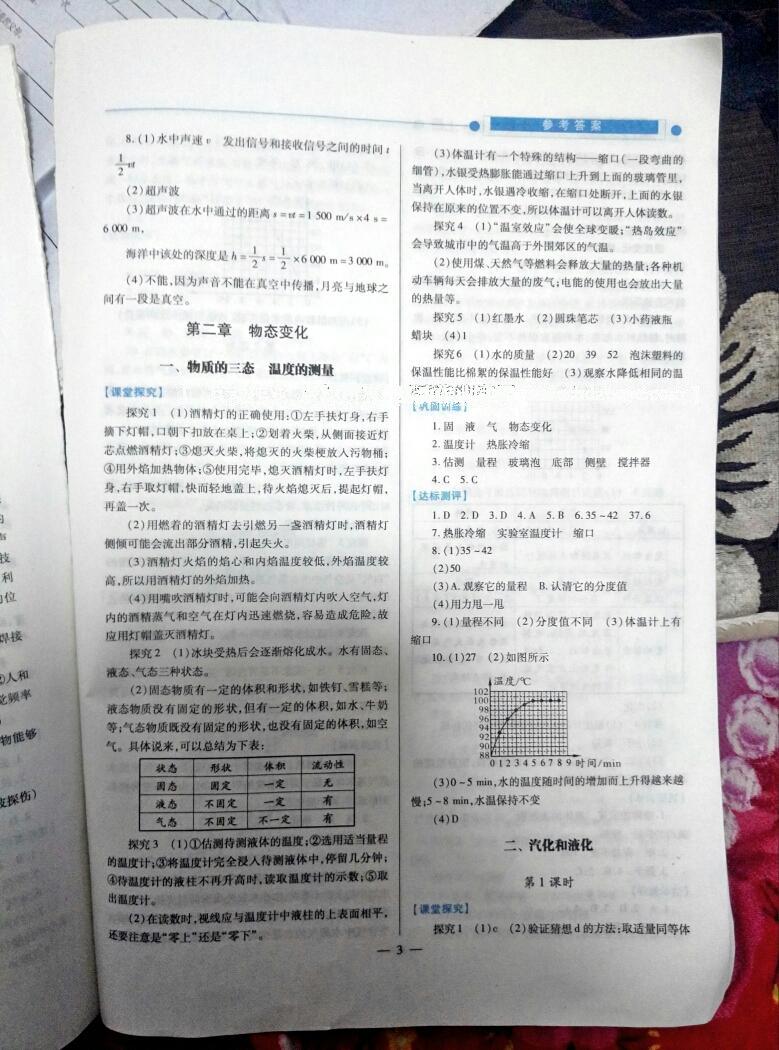 参考答案
8.(1)水中声速 v 发出信号和接收信号之间的时间 t
1/2 vt
(2)超声波
(3)超声波在水中通过的距离 s=vt=1 500 m/s×4 s=
6 000 m,
海洋中该处的深度是 h=1/2 s=1/2×6 000 m=3 000 m。
(4)不能,因为声音不能在真空中传播,月亮与地球之
间有一段是真空。
第二章 物态变化
一、物质的三态 温度的测量
【课堂探究】
探究1 (1)酒精灯的正确使用:①左手扶灯身,右手
摘下灯帽,口朝下扣放在桌上;②划着火柴,从侧面接近灯
芯点燃酒精灯;③熄灭火柴,将熄灭的火柴梗放入污物桶;
④用外焰加热物体;⑤使用完毕,熄灭酒精灯时,左手扶灯
身,右手取灯帽,快而轻地盖上,待火焰熄灭后,提起灯帽,
再盖一次。
(2)用燃着的酒精灯去引燃另一盏酒精灯时,酒精灯
侧倾可能会流出部分酒精,引起失火。
(3)酒精灯火焰的焰心和内焰温度较低,外焰温度较
高,所以用酒精灯的外焰加热。
(4)用嘴吹酒精灯时,可能会向酒精灯内吹入空气,灯
内的酒精蒸气和空气在灯内迅速燃烧,容易造成危险,故
应用灯帽盖灭酒精灯。
探究2 (1)冰块受热后会逐渐熔化成水。水有固态、
液态、气态三种状态。
(2)固态物质有一定的体积和形状,如铁钉、雪糕等;
液态物质没有固定的形状,但有一定的体积,如水、牛奶
等;气态物质既没有固定的形状,也没有固定的体积,如空
气。具体说来,可以总结为下表:
状态 形状 体积 流动性
固态 固定 一定 无
液态 不固定 一定 有
气态 不固定 不一定 有
探究3 (1)①估测待测液体的温度;②选用适当量程
的温度计;③将温度计完全浸入待测液体中,停留几分钟;
④待温度计的液柱不再升高时,读取温度计的示数;⑤取
出温度计。
(2)在读数时,视线应与温度计中液柱的上表面相平,
还要注意是“零上”还是“零下”。
(3)体温计有一个特殊的结构——缩口(一段弯曲的
细管),水银受热膨胀能通过缩口上升到上面的玻璃管里,
当离开人体时,水银遇冷收缩,在缩口处断开,上面的水银
保持在原来的位置不变,所以体温计可以离开人体读数。
探究4 (1)“温室效应”会使全球变暖;“热岛效应”
会导致城市中的气温高于外围郊区的气温。
(2)使用煤、天然气等燃料会释放大量的热量;各种机
动车辆每天会排放大量的废气;电能的使用也会放出大量
的热量等。
探究5 (1)红墨水 (2)圆珠笔芯 (3)小药液瓶
蜡块 (4)1
探究6 (1)水的质量 (2)20 39 52 泡沫塑料的
保温性能比棉絮的保温性能好 (3)观察水降低相同的温
【巩固训练】
1.固 液 气 物态变化
2.温度计 热胀冷缩
3.估测 量程 玻璃泡 底部 侧壁 搅拌器
4.C 5.C
【达标测评】
1.D 2.D 3.D 4.A 5.B 6.35~42 37.6
7.热胀冷缩 实验室温度计 缩口
8.(1)35~42
(2)50
(3)A.观察它的量程 B.认清它的分度值
(4)用力甩一甩
9.(1)量程不同 (2)分度值不同 (3)体温计上有
缩口
10.(1)27 (2)如图所示
温度/℃
102
100
98
96
94
92
90
88
0 1 2 3 4 5 6 7 8 9 时间/min
(3)0~5 min,水的温度随时间的增加而上升得越来越
慢;5~8 min,水温保持不变
(4)D
二、汽化和液化
第1课时
【课堂探究】
探究1 (1)c (2)验证猜想d的方法:取适量同等体
— 3 —